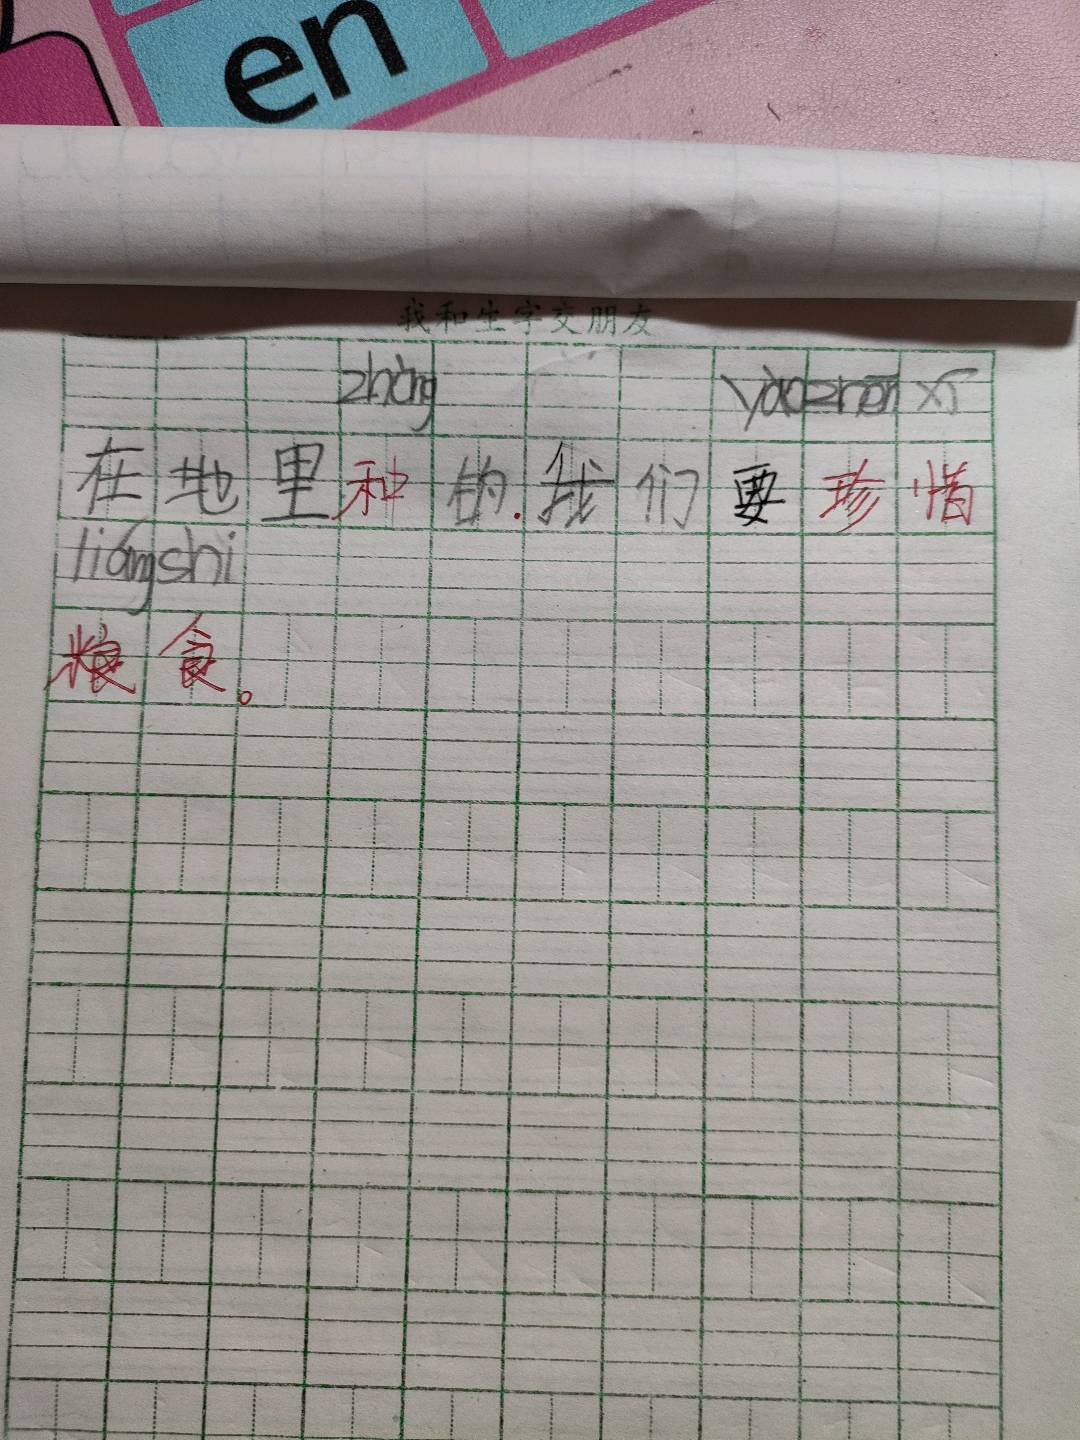 en
我和生字交朋友
zhòng yào zhēn xī
在地里种的.我们要珍惜
liáng shi
粮食。